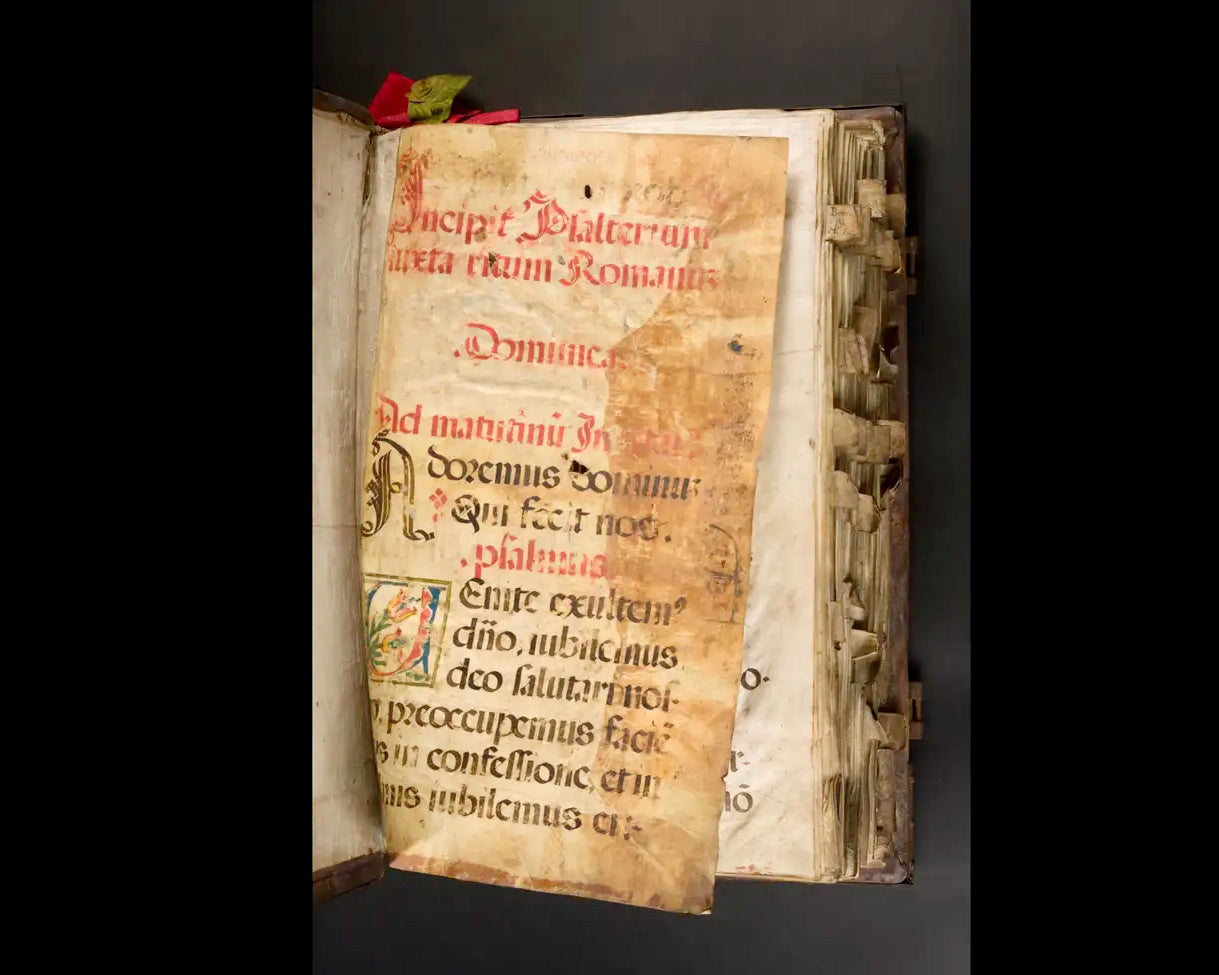 Incipit Psalterium
iuxta ritum Romanũ
.Dominica.
Ad matutinũ
Adoremus dominũ
Qui fecit nos.
.psalmus.
VEnite exultemꝰ
dño, iubilemus
deo salutari nos-
o, preoccupemus faciẽ
s in confessione, et in
mis iubilemus ei:
o.
r-
nõ